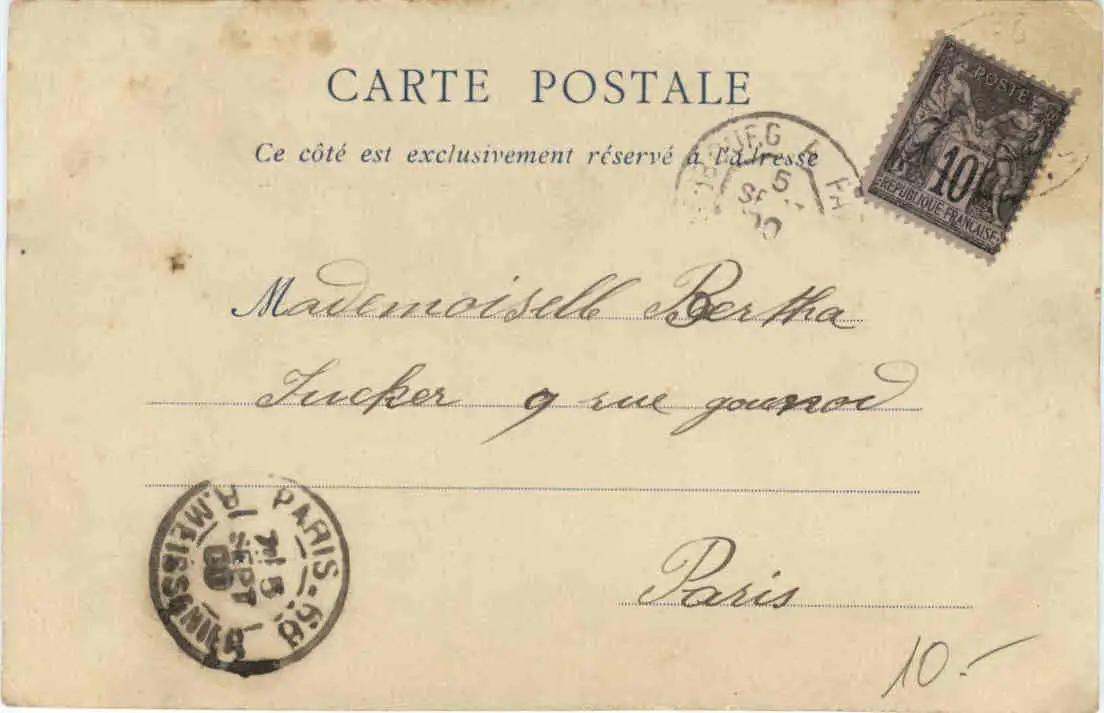 CARTE POSTALE
Ce côté est exclusivement réservé à l'adresse
POSTE
10
REPUBLIQUE FRANÇAISE
5
Mademoiselle Bertha
Jucker 9 rue gounod
PARIS-69
R. MEISSONIER
5
SEPT
00
Paris
10.-